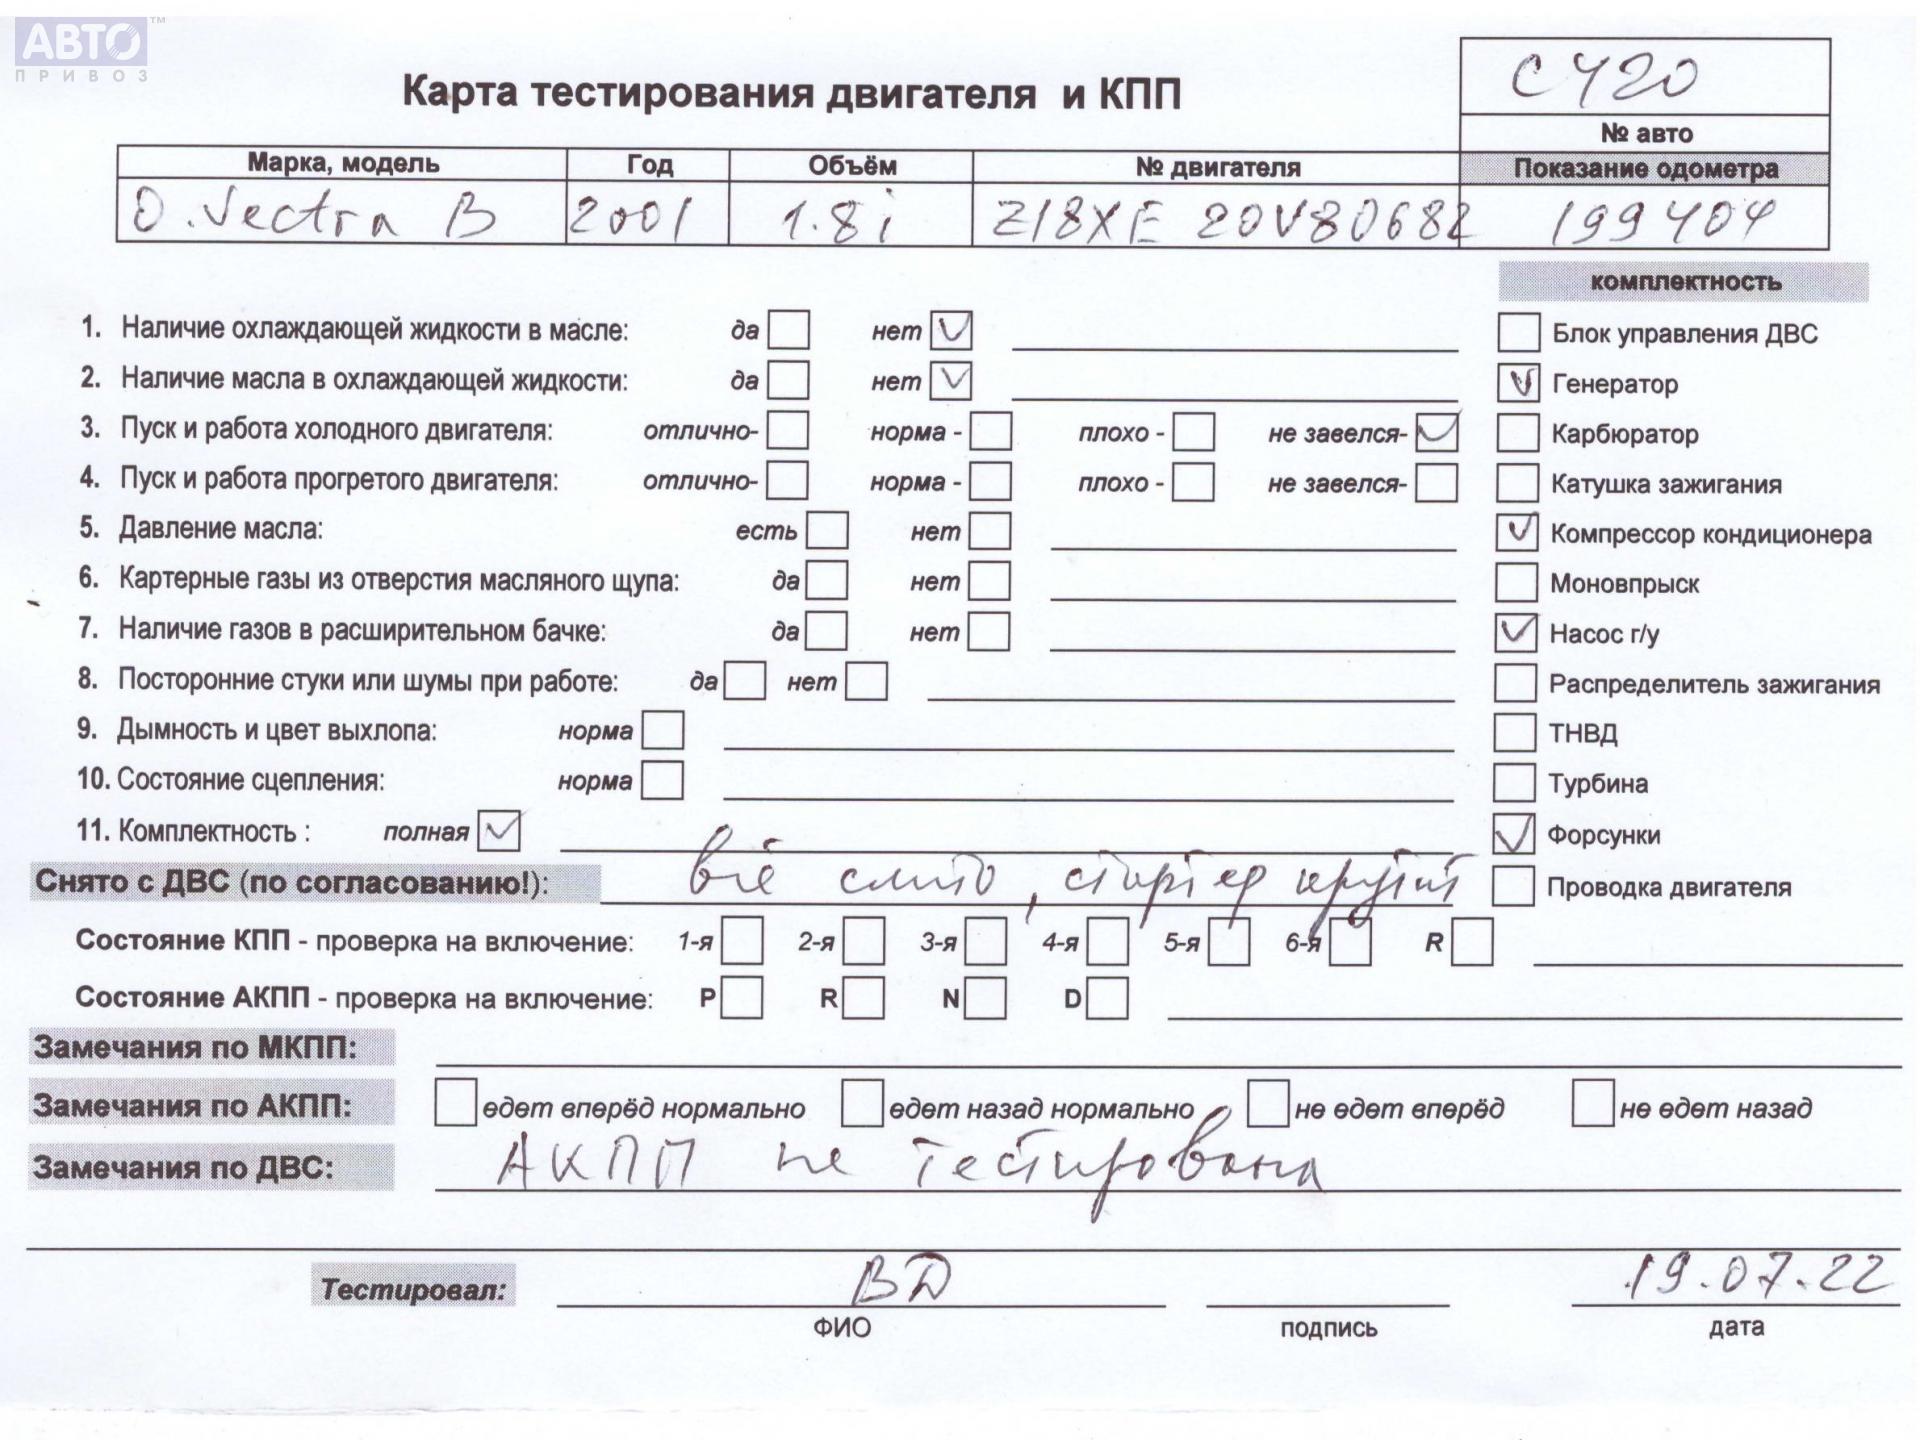 АВТО™
ПРИВОЗ
Карта тестирования двигателя и КПП
С420
№ авто
Марка, модель Год Объём № двигателя Показание одометра
O. Vectra B 2001 1.8i Z18XE 20V80682 199404
комплектность
1. Наличие охлаждающей жидкости в масле: да нет Блок управления ДВС
2. Наличие масла в охлаждающей жидкости: да нет Генератор
3. Пуск и работа холодного двигателя: отлично- норма - плохо - не завелся- Карбюратор
4. Пуск и работа прогретого двигателя: отлично- норма - плохо - не завелся- Катушка зажигания
5. Давление масла: есть нет Компрессор кондиционера
6. Картерные газы из отверстия масляного щупа: да нет Моновпрыск
7. Наличие газов в расширительном бачке: да нет Насос г/у
8. Посторонние стуки или шумы при работе: да нет Распределитель зажигания
9. Дымность и цвет выхлопа: норма ТНВД
10. Состояние сцепления: норма Турбина
11. Комплектность : полная Форсунки
Снято с ДВС (по согласованию!): всё слито, стартер крутит Проводка двигателя
Состояние КПП - проверка на включение: 1-я 2-я 3-я 4-я 5-я 6-я R
Состояние АКПП - проверка на включение: P R N D
Замечания по МКПП:
Замечания по АКПП: едет вперёд нормально едет назад нормально не едет вперёд не едет назад
Замечания по ДВС: АКПП не тестирована
Тестировал: ВД 19.07.22
ФИО подпись дата